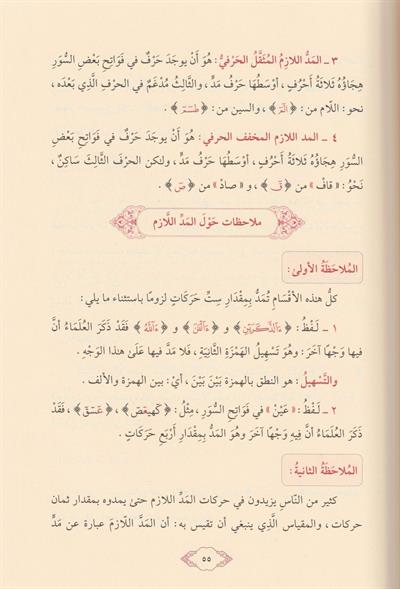 ٣ ـ المَدُّ اللازِمُ المُثَقَّلُ الحَرْفيُّ : هُوَ أَنْ يوجَدَ حَرْفٌ في فَوَاتِحِ بَعْضِ السُّوَرِ
هِجَاؤُهُ ثَلَاثَةُ أَحْرُفٍ ، أَوْسَطُهَا حَرْفُ مَدٍّ ، والثَّالِثُ مُدْغَمٌ في الحرْفِ الَّذِي بَعْدَه ،
نحو : اللّام من : ﴿ الٓمٓ ﴾ ، والسين من : ﴿ طسٓمٓ ﴾ .
٤ ـ المد اللازم المخفف الحرفي : هُوَ أَنْ يوجَدَ حَرْفٌ في فَوَاتِحِ بَعْضِ
السُّوَرِ هِجَاؤُهُ ثَلَاثَةُ أَحْرُفٍ ، أَوْسَطُهَا حَرْفُ مَدٍّ ، ولكن الحرْفَ الثَّالِثَ سَاكِنٌ ،
نَحْوُ : « قاف » من ﴿ قٓ ﴾ ، و « صادْ » من ﴿ صٓ ﴾ .
ملاحظات حَوْلَ المَدِّ اللَّازم
المُلاحَظَةُ الأولىٰ :
كلُّ هذه الأقْسَامِ تُمَدُّ بِمِقْدَارِ سِتِّ حَرَكَاتٍ لزومًا باستثناء ما يلي :
١ ـ لَفْظُ : ﴿ ءَآلذَّكَرَيْنِ ﴾ و ﴿ ءَآلْـَٰٔنَ ﴾ و ﴿ ءَآللَّهُ ﴾ فَقَدْ ذَكَرَ العُلَمَاءُ أنَّ
فيها وَجْهًا آخَرَ : وهُوَ تَسْهِيلُ الهَمْزَةِ الثَّانِيَةِ ، فَلا مَدَّ فيها عَلَىٰ هذا الوَجْهِ .
والتَّسْهيلُ : هو النطق بالهمزة بَيْنَ بَيْنَ ، أيْ : بين الهمزة والألف .
٢ ـ لَفْظُ : « عَيْنْ » في فَوَاتِحِ السُّوَرِ ، مِثْلُ : ﴿ كٓهيعٓصٓ ﴾ ، ﴿ عٓسٓقٓ ﴾ ، فَقَدْ
ذَكَرَ العُلَمَاءُ أنَّ فيه وَجْهًا آخَرَ وهُوَ المَدُّ بِمِقْدَارِ أَرْبَعِ حَرَكَاتٍ .
المُلاحَظَةُ الثانيةُ :
كثير من النّاسِ يزيدون في حركات المَدِّ اللازم حتىٰ يمدوه بمقدار ثمان
حركات ، والمقياس الَّذِي ينبغي أن تقيس به : أن المَدَّ اللازمَ عبارة عن مَدٍّ
٥٥